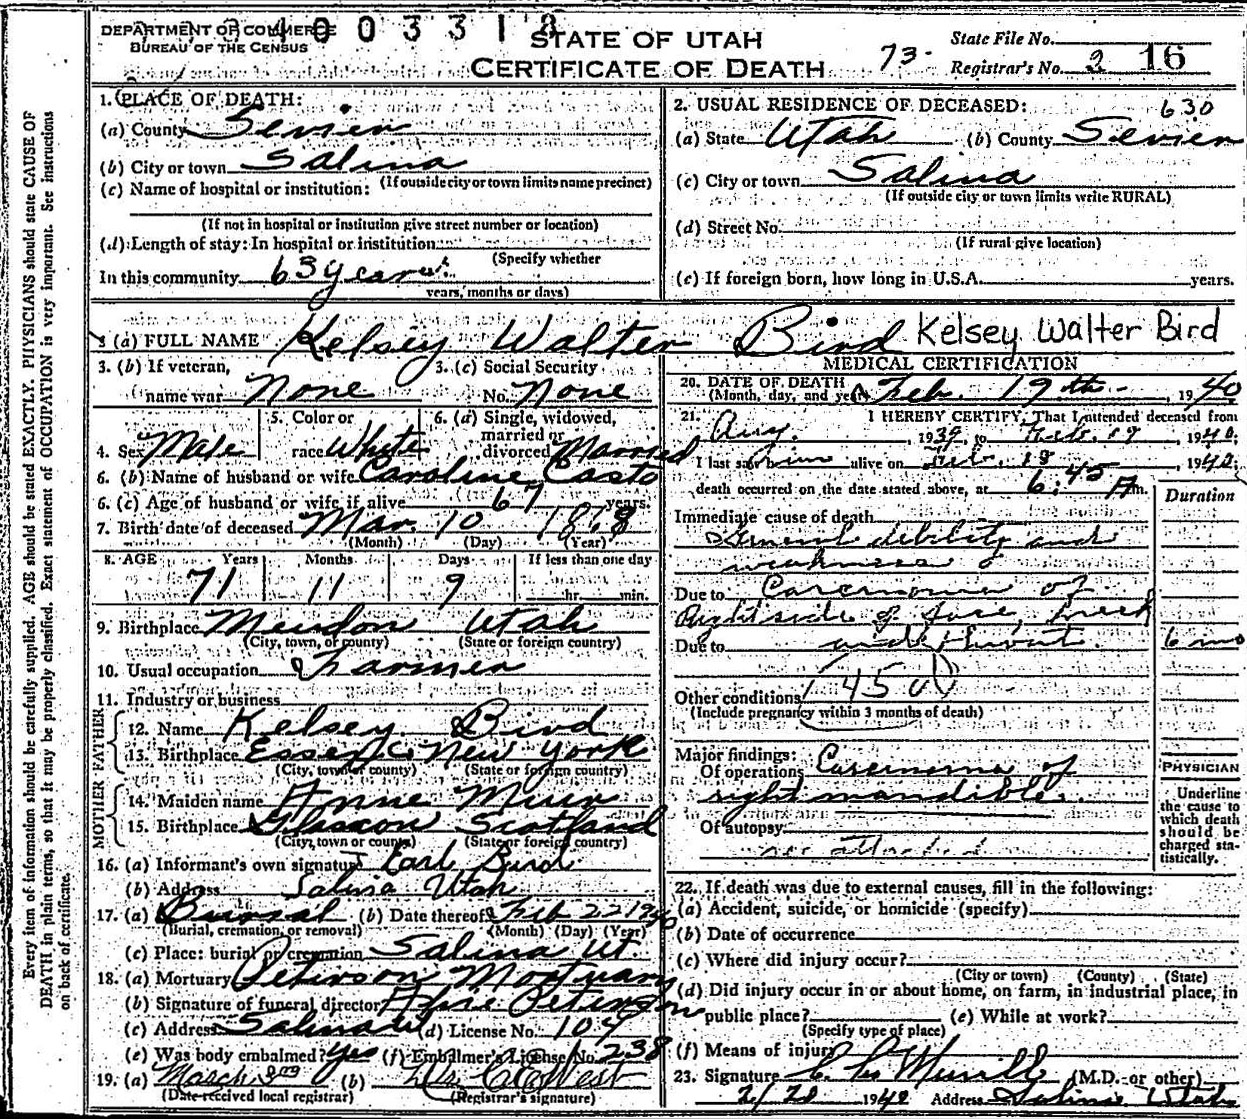 DEPARTMENT OF COMMERCE
BUREAU OF THE CENSUS
4003318
STATE OF UTAH
CERTIFICATE OF DEATH
73-
State File No.
Registrar's No. 2 16
Every item of information should be carefully supplied. AGE should be stated EXACTLY. PHYSICIANS should state CAUSE OF
DEATH in plain terms, so that it may be properly classified. Exact statement of OCCUPATION is very important. See instructions
on back of certificate.
1. PLACE OF DEATH:
(a) County Sevier
(b) City or town Salina
(If outside city or town limits name precinct)
(c) Name of hospital or institution:
(If not in hospital or institution give street number or location)
(d) Length of stay: In hospital or institution
(Specify whether
In this community 63 years
years, months or days)
2. USUAL RESIDENCE OF DECEASED: 630
(a) State Utah (b) County Sevier
(c) City or town Salina
(If outside city or town limits write RURAL)
(d) Street No.
(If rural give location)
(e) If foreign born, how long in U.S.A. years.
3 (a) FULL NAME Kelsey Walter Bird Kelsey Walter Bird
3. (b) If veteran, name war None
3. (c) Social Security No. None
4. Sex Male
5. Color or race White
6. (a) Single, widowed, married or divorced Married
6. (b) Name of husband or wife Caroline Casto
6. (c) Age of husband or wife if alive 67 years.
7. Birth date of deceased Mar. 10 1868
(Month) (Day) (Year)
8. AGE Years Months Days If less than one day
71 11 9 hr. min.
9. Birthplace Mendon Utah
(City, town, or county) (State or foreign country)
10. Usual occupation Farmer
11. Industry or business
FATHER
12. Name Kelsey Bird
13. Birthplace Essex Co New York
(City, town or county) (State or foreign country)
MOTHER
14. Maiden name Anne Muir
15. Birthplace Glascow Scotland
(City, town or county) (State or foreign country)
16. (a) Informant's own signature Earl Bird
(b) Address Salina Utah
17. (a) Burial (b) Date thereof Feb 22 1940
(Burial, cremation, or removal) (Month) (Day) (Year)
(c) Place: burial or cremation Salina Ut.
18. (a) Mortuary Peterson Mortuary
(b) Signature of funeral director Peterson
(c) Address Salina Ut (d) License No. 104
(e) Was body embalmed? Yes (f) Embalmer's License No. 238
19. (a) March 3rd (b) Mrs. C E West
(Date received local registrar) (Registrar's signature)
MEDICAL CERTIFICATION
20. DATE OF DEATH
(Month, day, and year) Feb. 19th 1940
21. I HEREBY CERTIFY, That I attended deceased from
Aug. , 1939, to Feb. 19 , 1940;
I last saw him alive on Feb. 19 , 1940;
death occurred on the date stated above, at 6:45 A m.
Duration
Immediate cause of death
General debility and
weakness
Due to Carcenoma of
Right side of face, cheek
Due to and throat. 6 mo
Other conditions 45
(Include pregnancy within 3 months of death)
Major findings:
Of operations Carcenoma of
right mandible.
Of autopsy
see attached
PHYSICIAN
Underline
the cause to
which death
should be
charged sta-
tistically.
22. If death was due to external causes, fill in the following:
(a) Accident, suicide, or homicide (specify)
(b) Date of occurrence
(c) Where did injury occur?
(City or town) (County) (State)
(d) Did injury occur in or about home, on farm, in industrial place, in
public place? (e) While at work?
(Specify type of place)
(f) Means of injury
23. Signature (M.D. or other)
2/20 1940 Address Salina Utah